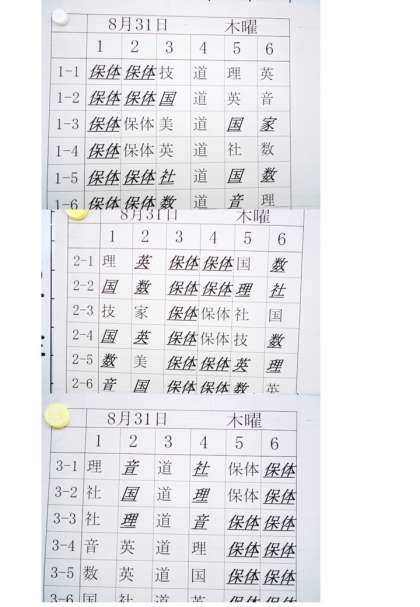 8月31日 木曜
1 2 3 4 5 6
1-1 保体 保体 技 道 理 英
1-2 保体 保体 国 道 英 音
1-3 保体 保体 美 道 国 家
1-4 保体 保体 英 道 社 数
1-5 保体 保体 社 道 国 数
1-6 保体 保体 数 道 音 理
8月31日 木曜
1 2 3 4 5 6
2-1 理 英 保体 保体 国 数
2-2 国 数 保体 保体 理 社
2-3 技 家 保体 保体 社 国
2-4 国 英 保体 保体 技 数
2-5 数 美 保体 保体 英 理
2-6 音 国 保体 保体 数 英
8月31日 木曜
1 2 3 4 5 6
3-1 理 音 道 社 保体 保体
3-2 社 国 道 理 保体 保体
3-3 社 理 道 音 保体 保体
3-4 音 英 道 理 保体 保体
3-5 数 英 道 国 保体 保体
3-6 国 社 道 英 保体 保体